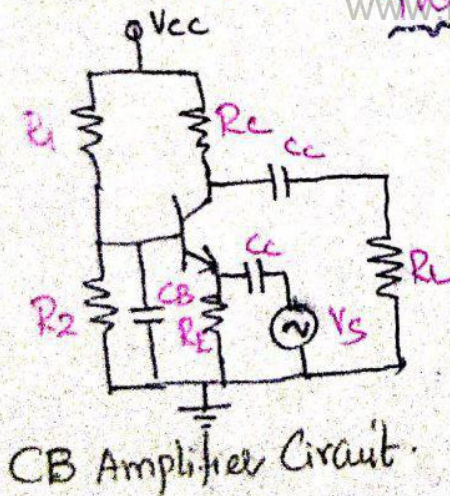 www.
Vcc
R1
RC
CC
CC
RL
R2
CB
RE
VS
CB Amplifier Circuit.